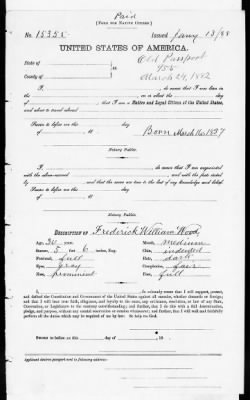 Paid
[FORM FOR NATIVE CITIZEN.]
No. 15351 Issued Jany 13/88
UNITED STATES OF AMERICA.
State of Old Passport
County of March 24, 1882
I, do swear that I was born
in on or about the day
of that I am a Native and Loyal Citizen of the United States,
and about to travel abroad
Sworn to before me, this day
of 18 Born March 16 1857
Notary Public.
I, do swear that I am acquainted
with the above-named and with the facts stated
by and that the same are true to the best of my knowledge and belief.
Sworn to before me, this day
of 18
Notary Public.
DESCRIPTION OF Frederick William Wood,
Age, 30 Mouth, medium
5 feet 6 inches, Eng. Chin, indented
Forehead, full Hair, dark
Eyes, gray Complexion, fair
Nose, prominent Face, full
I, do solemnly swear that I will support, protect,
and defend the Constitution and Government of the United States against all enemies, whether domestic or foreign;
and that I will bear true faith, allegiance, and loyalty to the same, any ordinance, resolution, or law of any State,
Convention, or Legislature to the contrary notwithstanding; and further, that I do this with a full determination,
pledge, and purpose, without any mental reservation or evasion whatsoever; and further, that I will well and faithfully
perform all the duties which may be required of me by law. So help me God.
Sworn to before me, this day of 18
Notary Public.
Applicant desires passport to be sent to